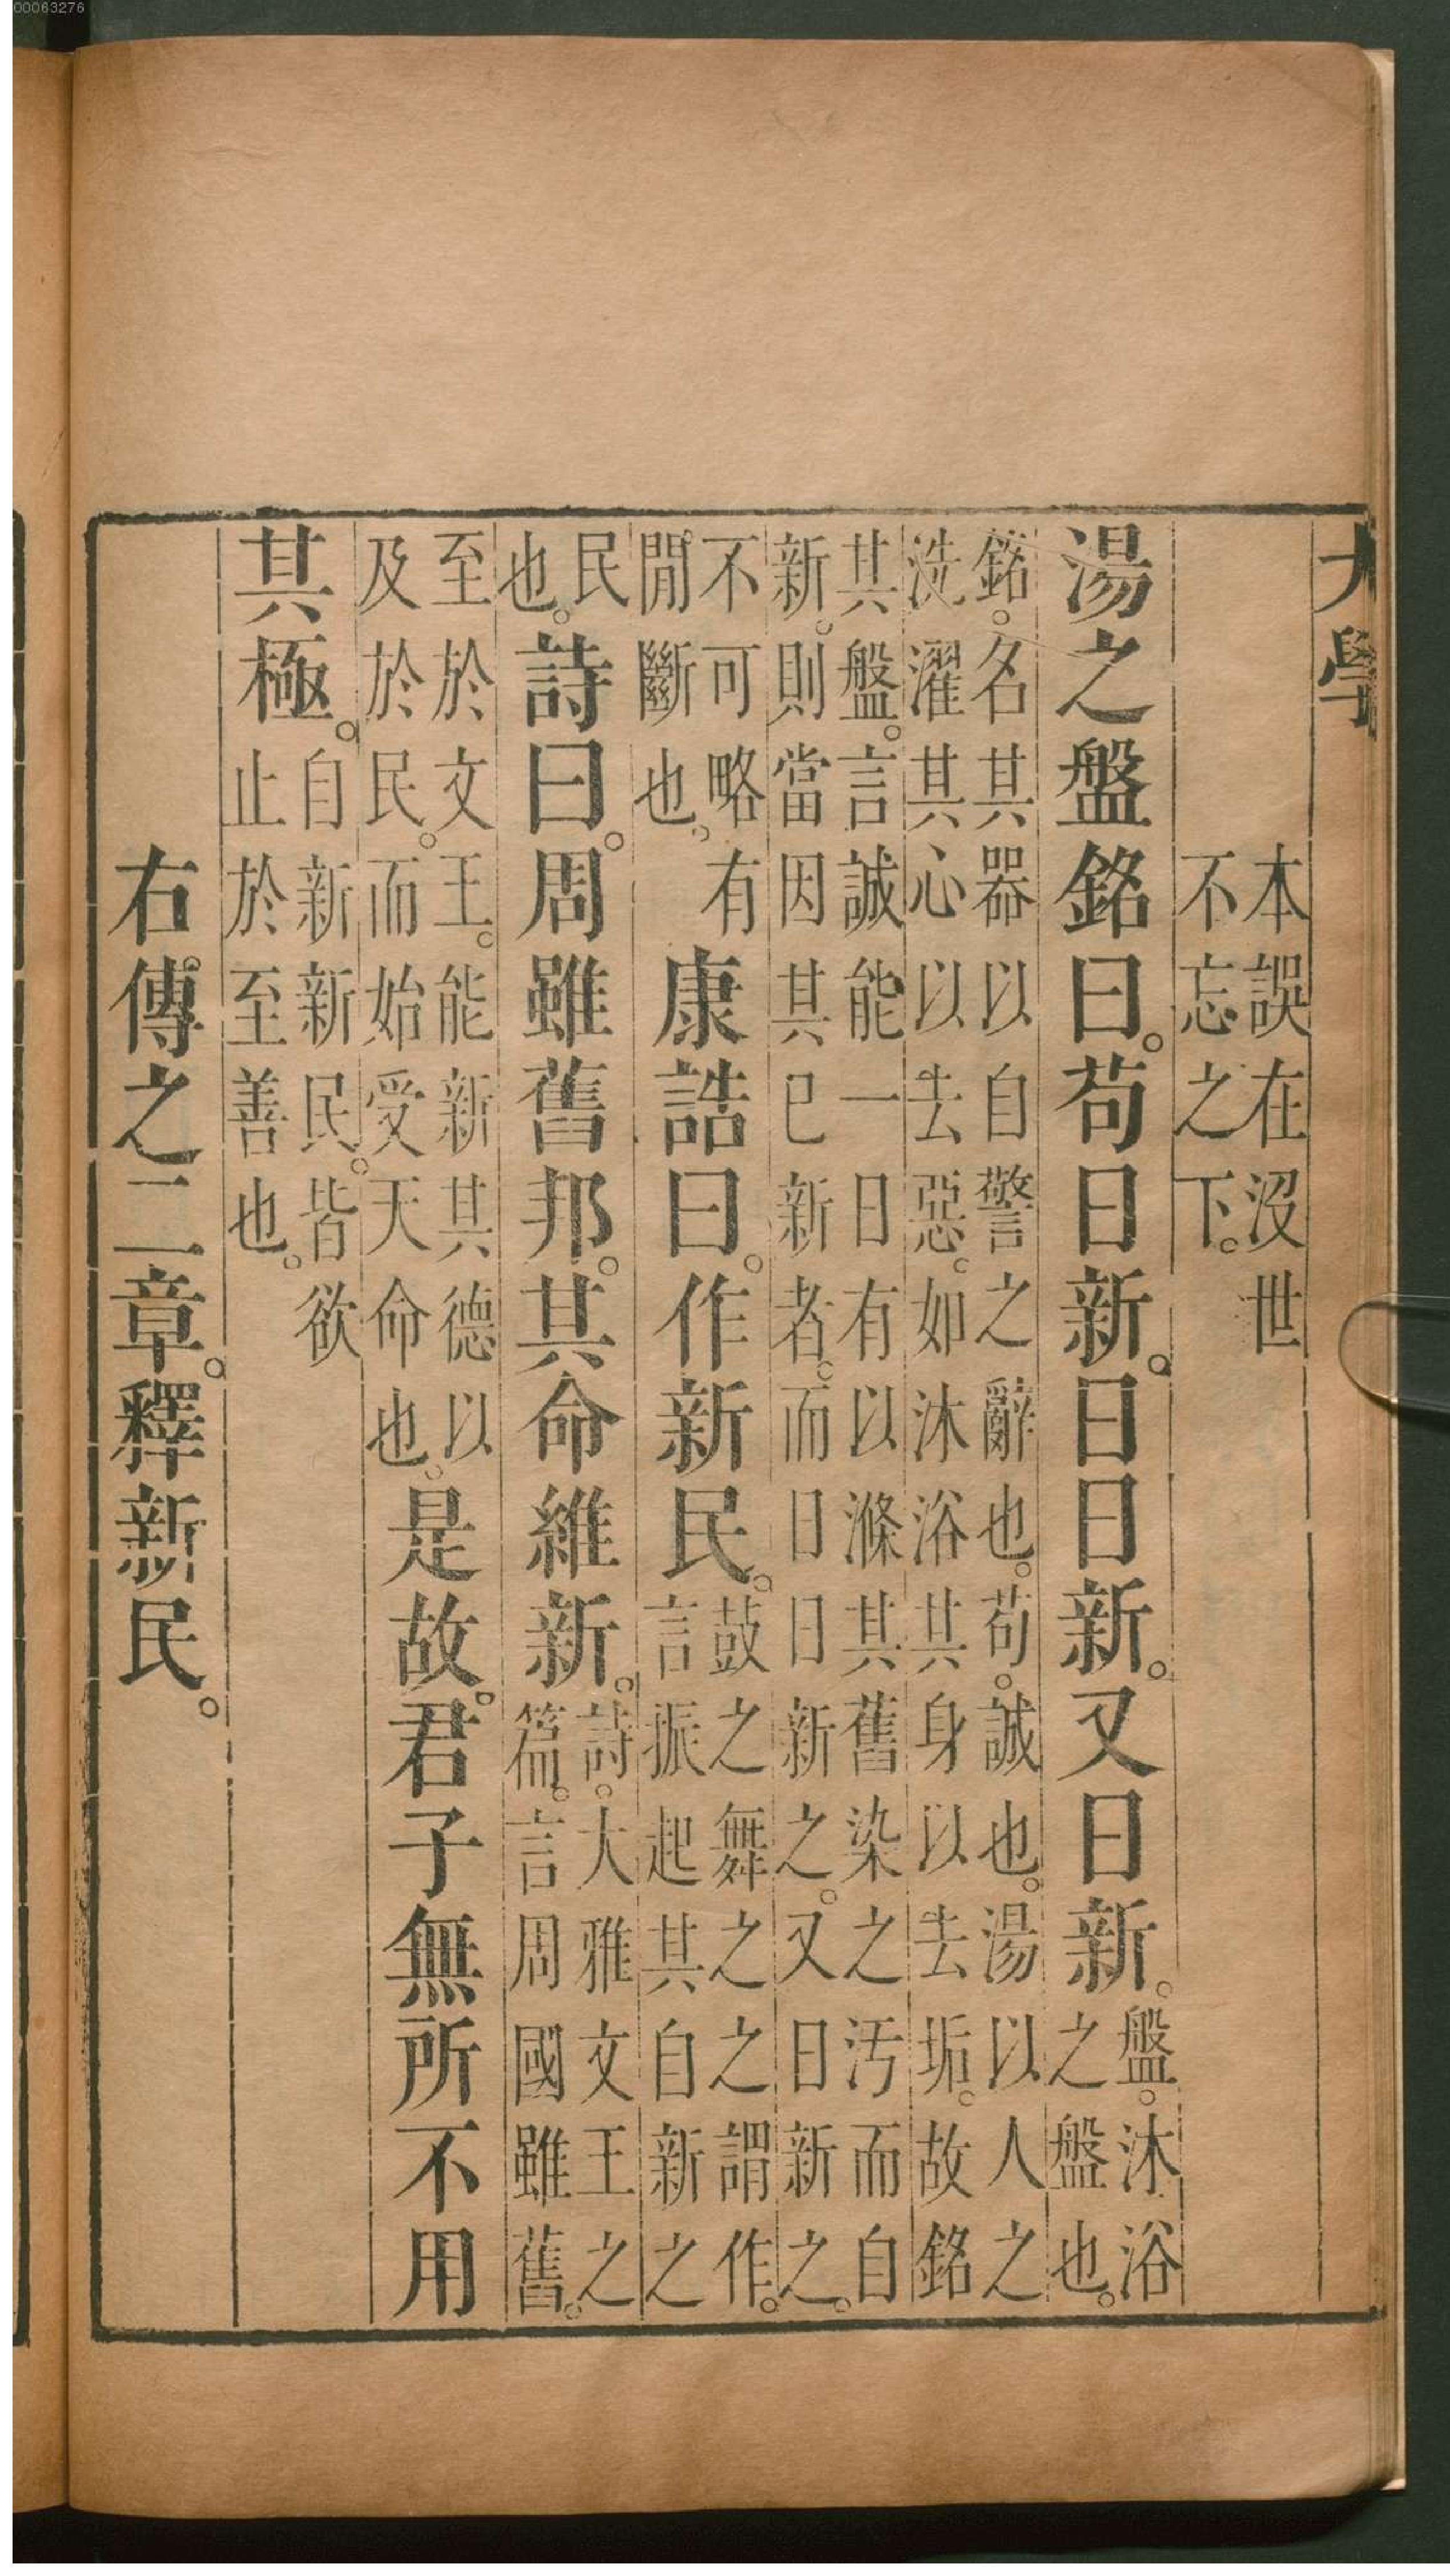 00063276
大學
本誤在沒世
不忘之下。
湯之盤銘曰。苟日新。日日新。又日新。
盤。沐浴
之盤也。
銘。名其器以自警之辭也。苟。誠也。湯以人之
洗濯其心以去惡。如沐浴其身以去垢。故銘
其盤。言誠能一日有以滌其舊染之汚而自
新。則當因其已新者。而日日新之。又日新之。
不可略有
閒斷也。
康誥曰。作新民。
鼓之舞之之謂作。
言振起其自新之
民
也。
詩曰。周雖舊邦。其命維新。
詩。大雅文王之
篇。言周國雖舊。
至於文王。能新其德以
及於民。而始受天命也。
是故。君子無所不用
其極。
自新新民。皆欲
止於至善也。
右傳之二章。釋新民。